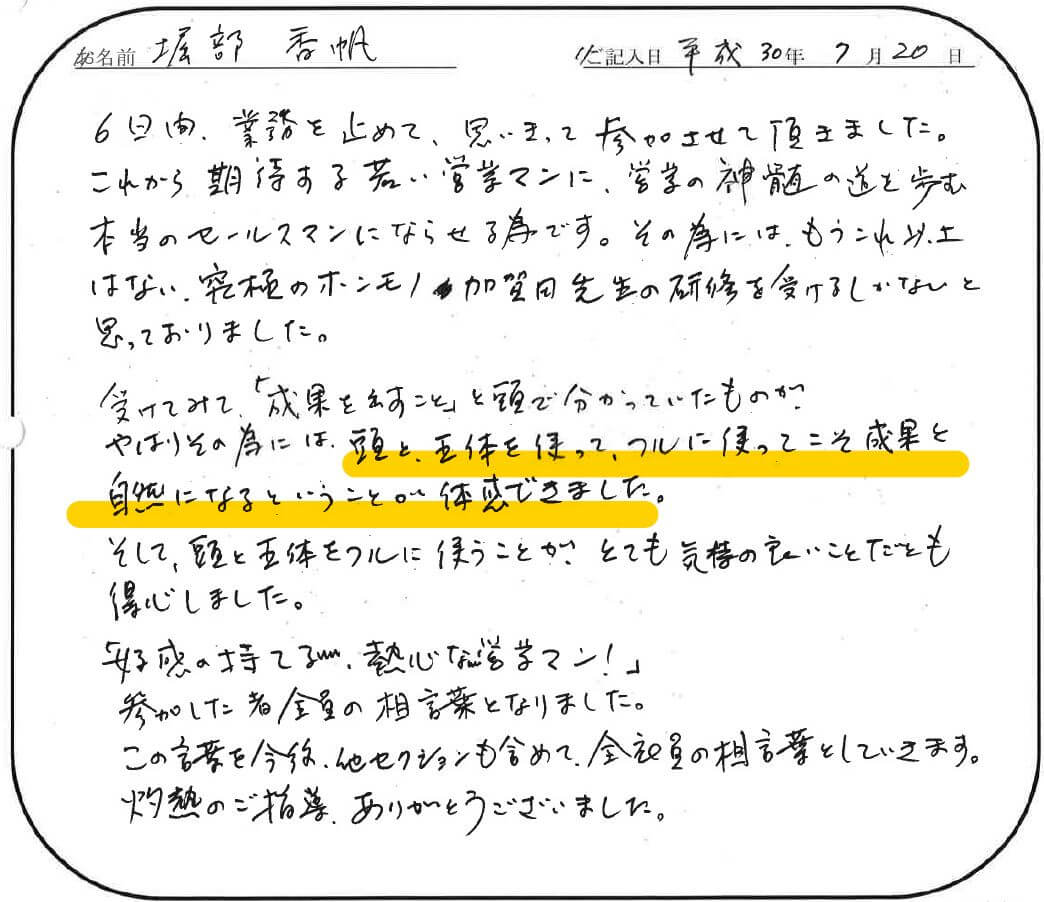 お名前 堀部 香帆 ご記入日 平成30年 7月20日
6日間、業務を止めて、思いきって参加させて頂きました。
これから期待する若い営業マンに、営業の神髄の道を歩む
本当のセールスマンにならせる為です。その為には、もうこれ以上
はない、究極のホンモノ 加賀田先生の研修を受けるしかないと
思っておりました。
受けてみて、「成果を出すこと」と頭で分かっていたものが、
やはりその為には、頭と、五体を使って、フルに使ってこそ成果と
自然になるということが体感できました。
そして、頭と五体をフルに使うことが、とても気持の良いことだとも
得心しました。
「好感の持てる、熱心な営業マン!」
参加した者全員の相言葉となりました。
この言葉を今後、他セクションも含めて、全社員の相言葉としていきます。
灼熱のご指導、ありがとうございました。